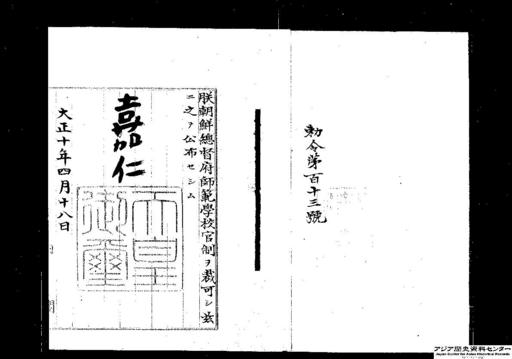 勅令第百十三號
朕朝鮮總督府師範學校官制ヲ裁可シ玆
ニ之ヲ公布セシム
嘉仁
天皇御璽
大正十年四月十八日
アジア歴史資料センター
Japan Center for Asian Historical Records